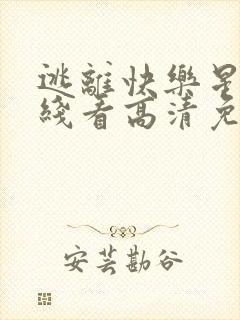 逃離快樂星
綫看高清免
安芸勘谷